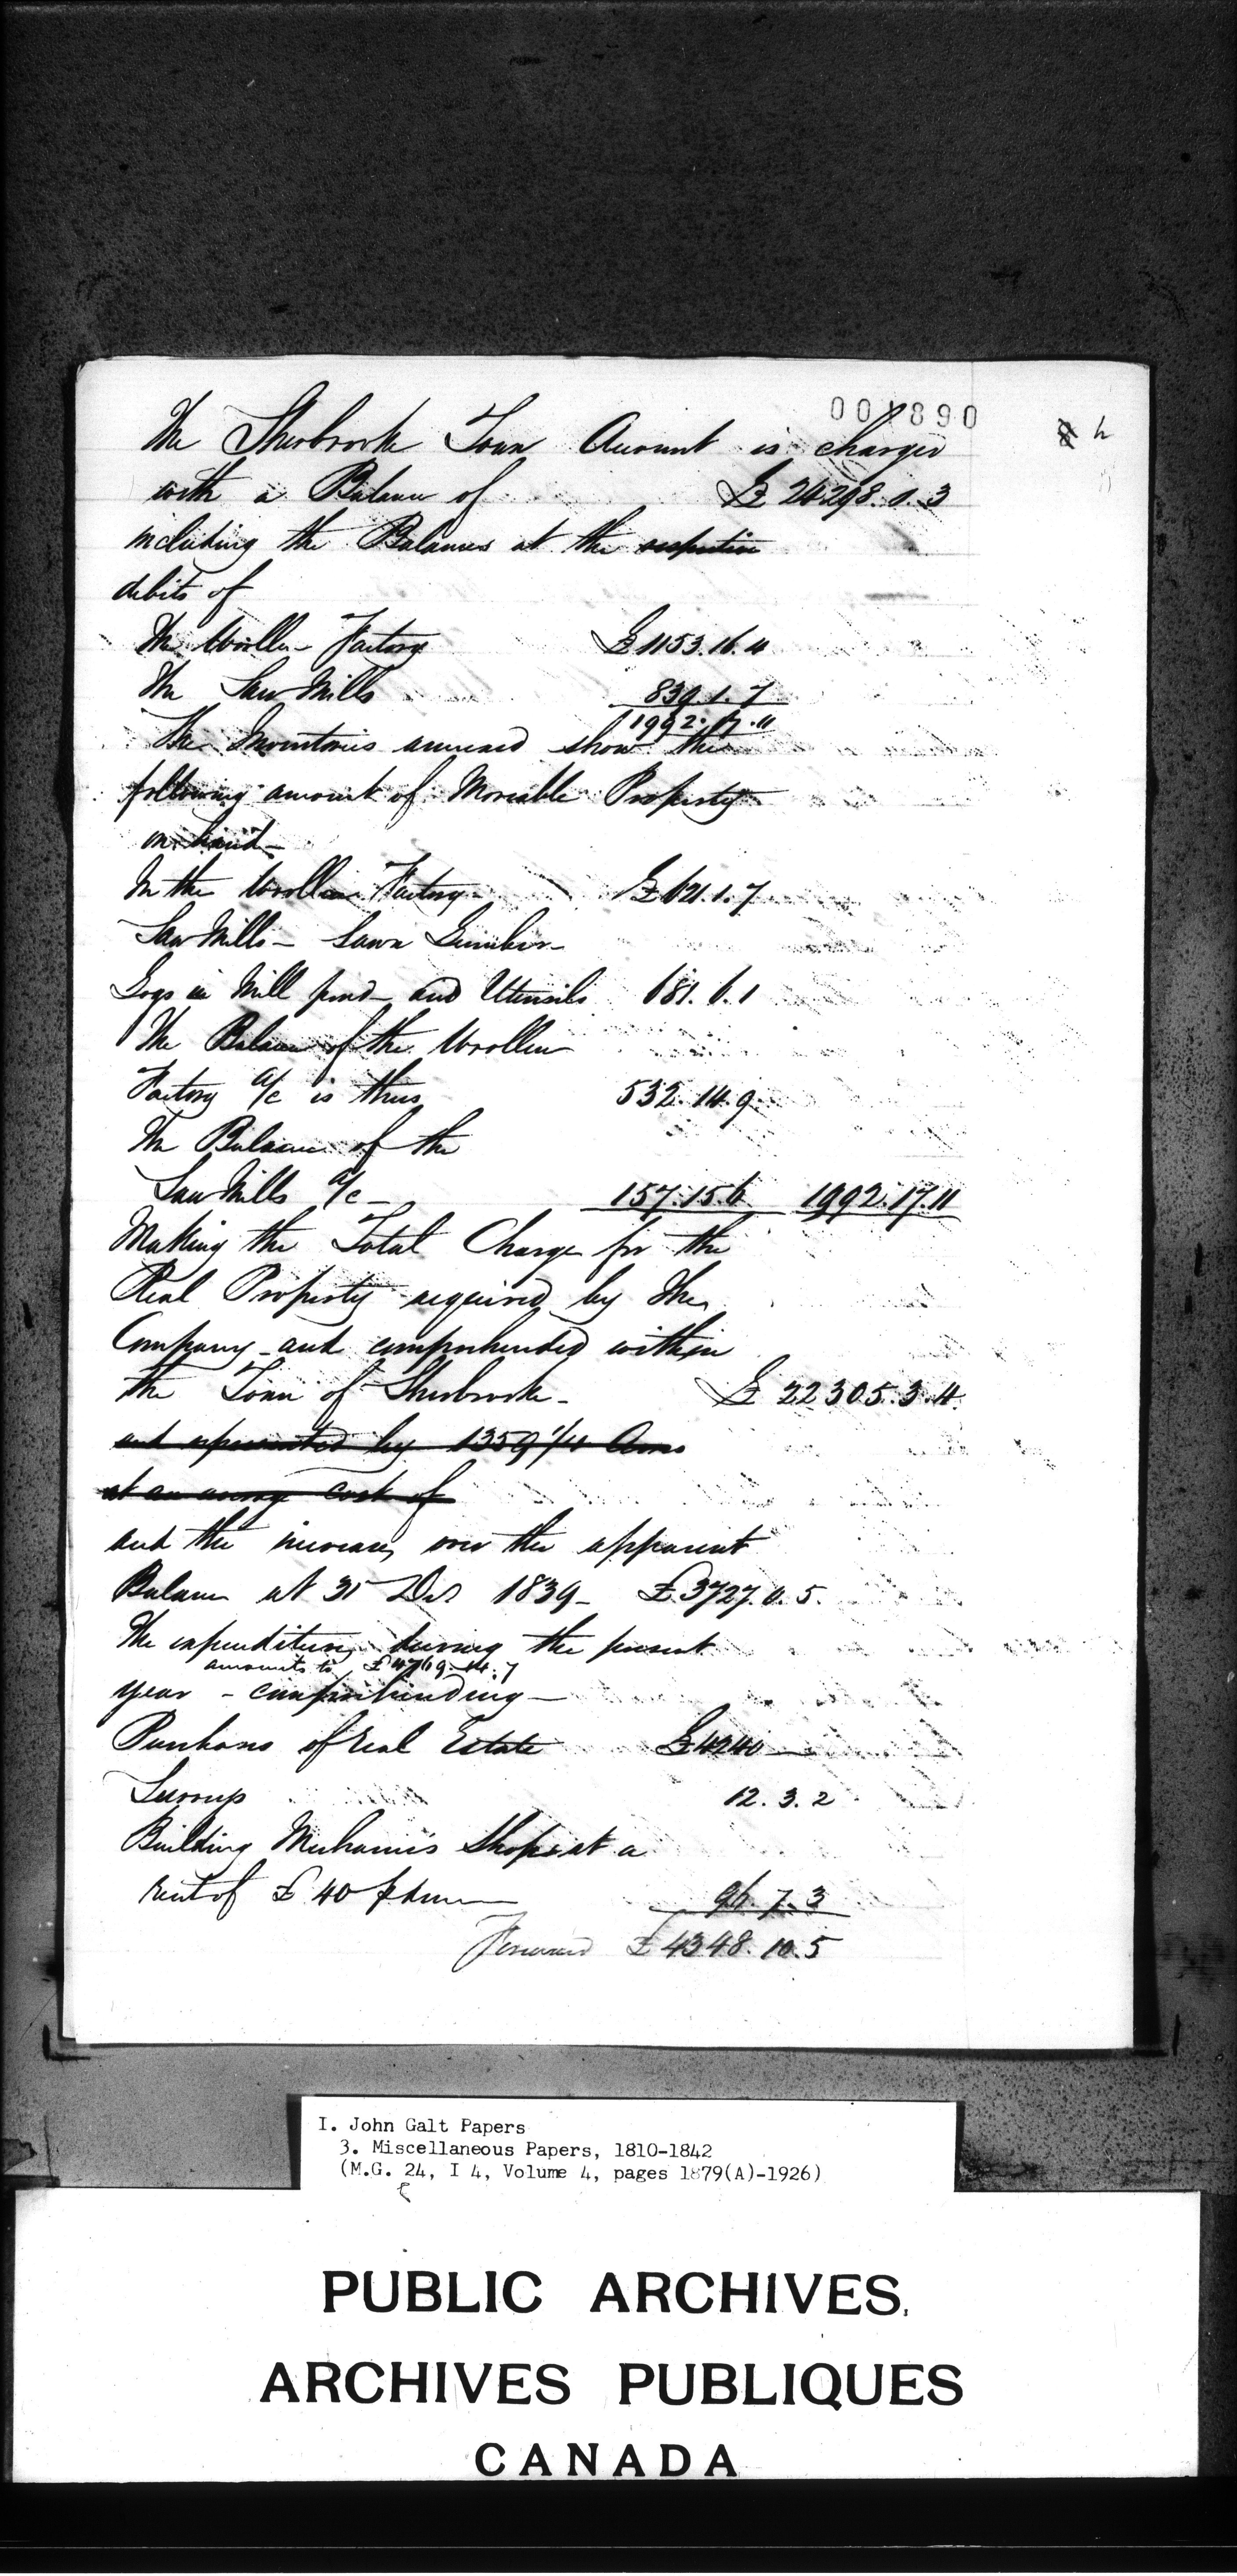 001890
The Sherbrooke Town Account is charged
8 4
with a Balance of £ 24298. 1. 3
including the Balances at the respective
debits of
The Woollen Factory £ 1153. 16. 4
The Saw Mills 839. 1. 7
1992. 17. 11
The Inventories annexed show the
following amount of Moveable Property
on hand -
In the Woollen Factory - £ 621. 1. 7
Saw Mills - Sawn Lumber -
Logs in Mill pond - and Utensils 681. 6. 1
The Balance of the Woollen
Factory a/c is thus 532. 14. 9
The Balance of the
Saw Mills a/c - 157. 15. 6 1992. 17. 11
Making the Total Charge for the
Real Property acquired by the
Company - and comprehended within
the Town of Sherbrooke - £ 22305. 3. 4
and represented by 1359 1/4 Acres
at an averag cost of
and the increase, over the apparent
Balance at 31 Decr 1839 - £ 3727. 0. 5.
The expenditure, during the present
amounts to £ 4769. 14. 7
year - comprehending -
Purchases of real Estate £ 4240 —
Surveys 12. 3. 2
Building Mechanics Shops at a
rent of £ 40 p Ann — 96. 7. 3
Forward £ 4348. 10. 5
I. John Galt Papers
3. Miscellaneous Papers, 1810-1842
(M.G. 24, I 4, Volume 4, pages 1879(A)-1926)
PUBLIC ARCHIVES
ARCHIVES PUBLIQUES
CANADA